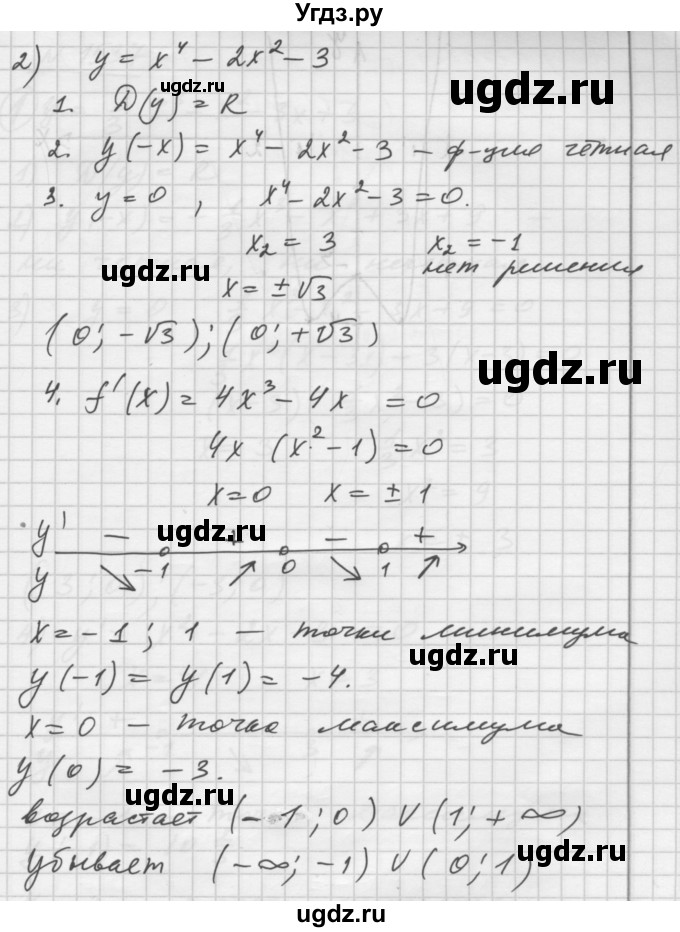 Угдз.ру
2) y = x⁴ - 2x² - 3
ugdz.ru
ugdz.ru
1. D(y) = R
2. y(-x) = x⁴ - 2x² - 3 - ф-ция чётная
3. y = 0 , x⁴ - 2x² - 3 = 0.
x₂ = 3 x₂ = -1
ugdz.ru
нет решения
x = ±√3
(0; -√3); (0; +√3)
ugdz.ru
4. f'(x) = 4x³ - 4x = 0
4x (x² - 1) = 0
x = 0 x = ± 1
y' - + - +
ugdz.ru
y -1 0 1
x = -1; 1 - точки минимума
ugdz.ru
y(-1) = y(1) = -4.
x = 0 - точка максимума
y(0) = -3.
ugdz.ru
возрастает (-1; 0) ∨ (1; +∞)
ugdz.ru
убывает (-∞; -1) ∨ (0; 1)
ugdz.ru